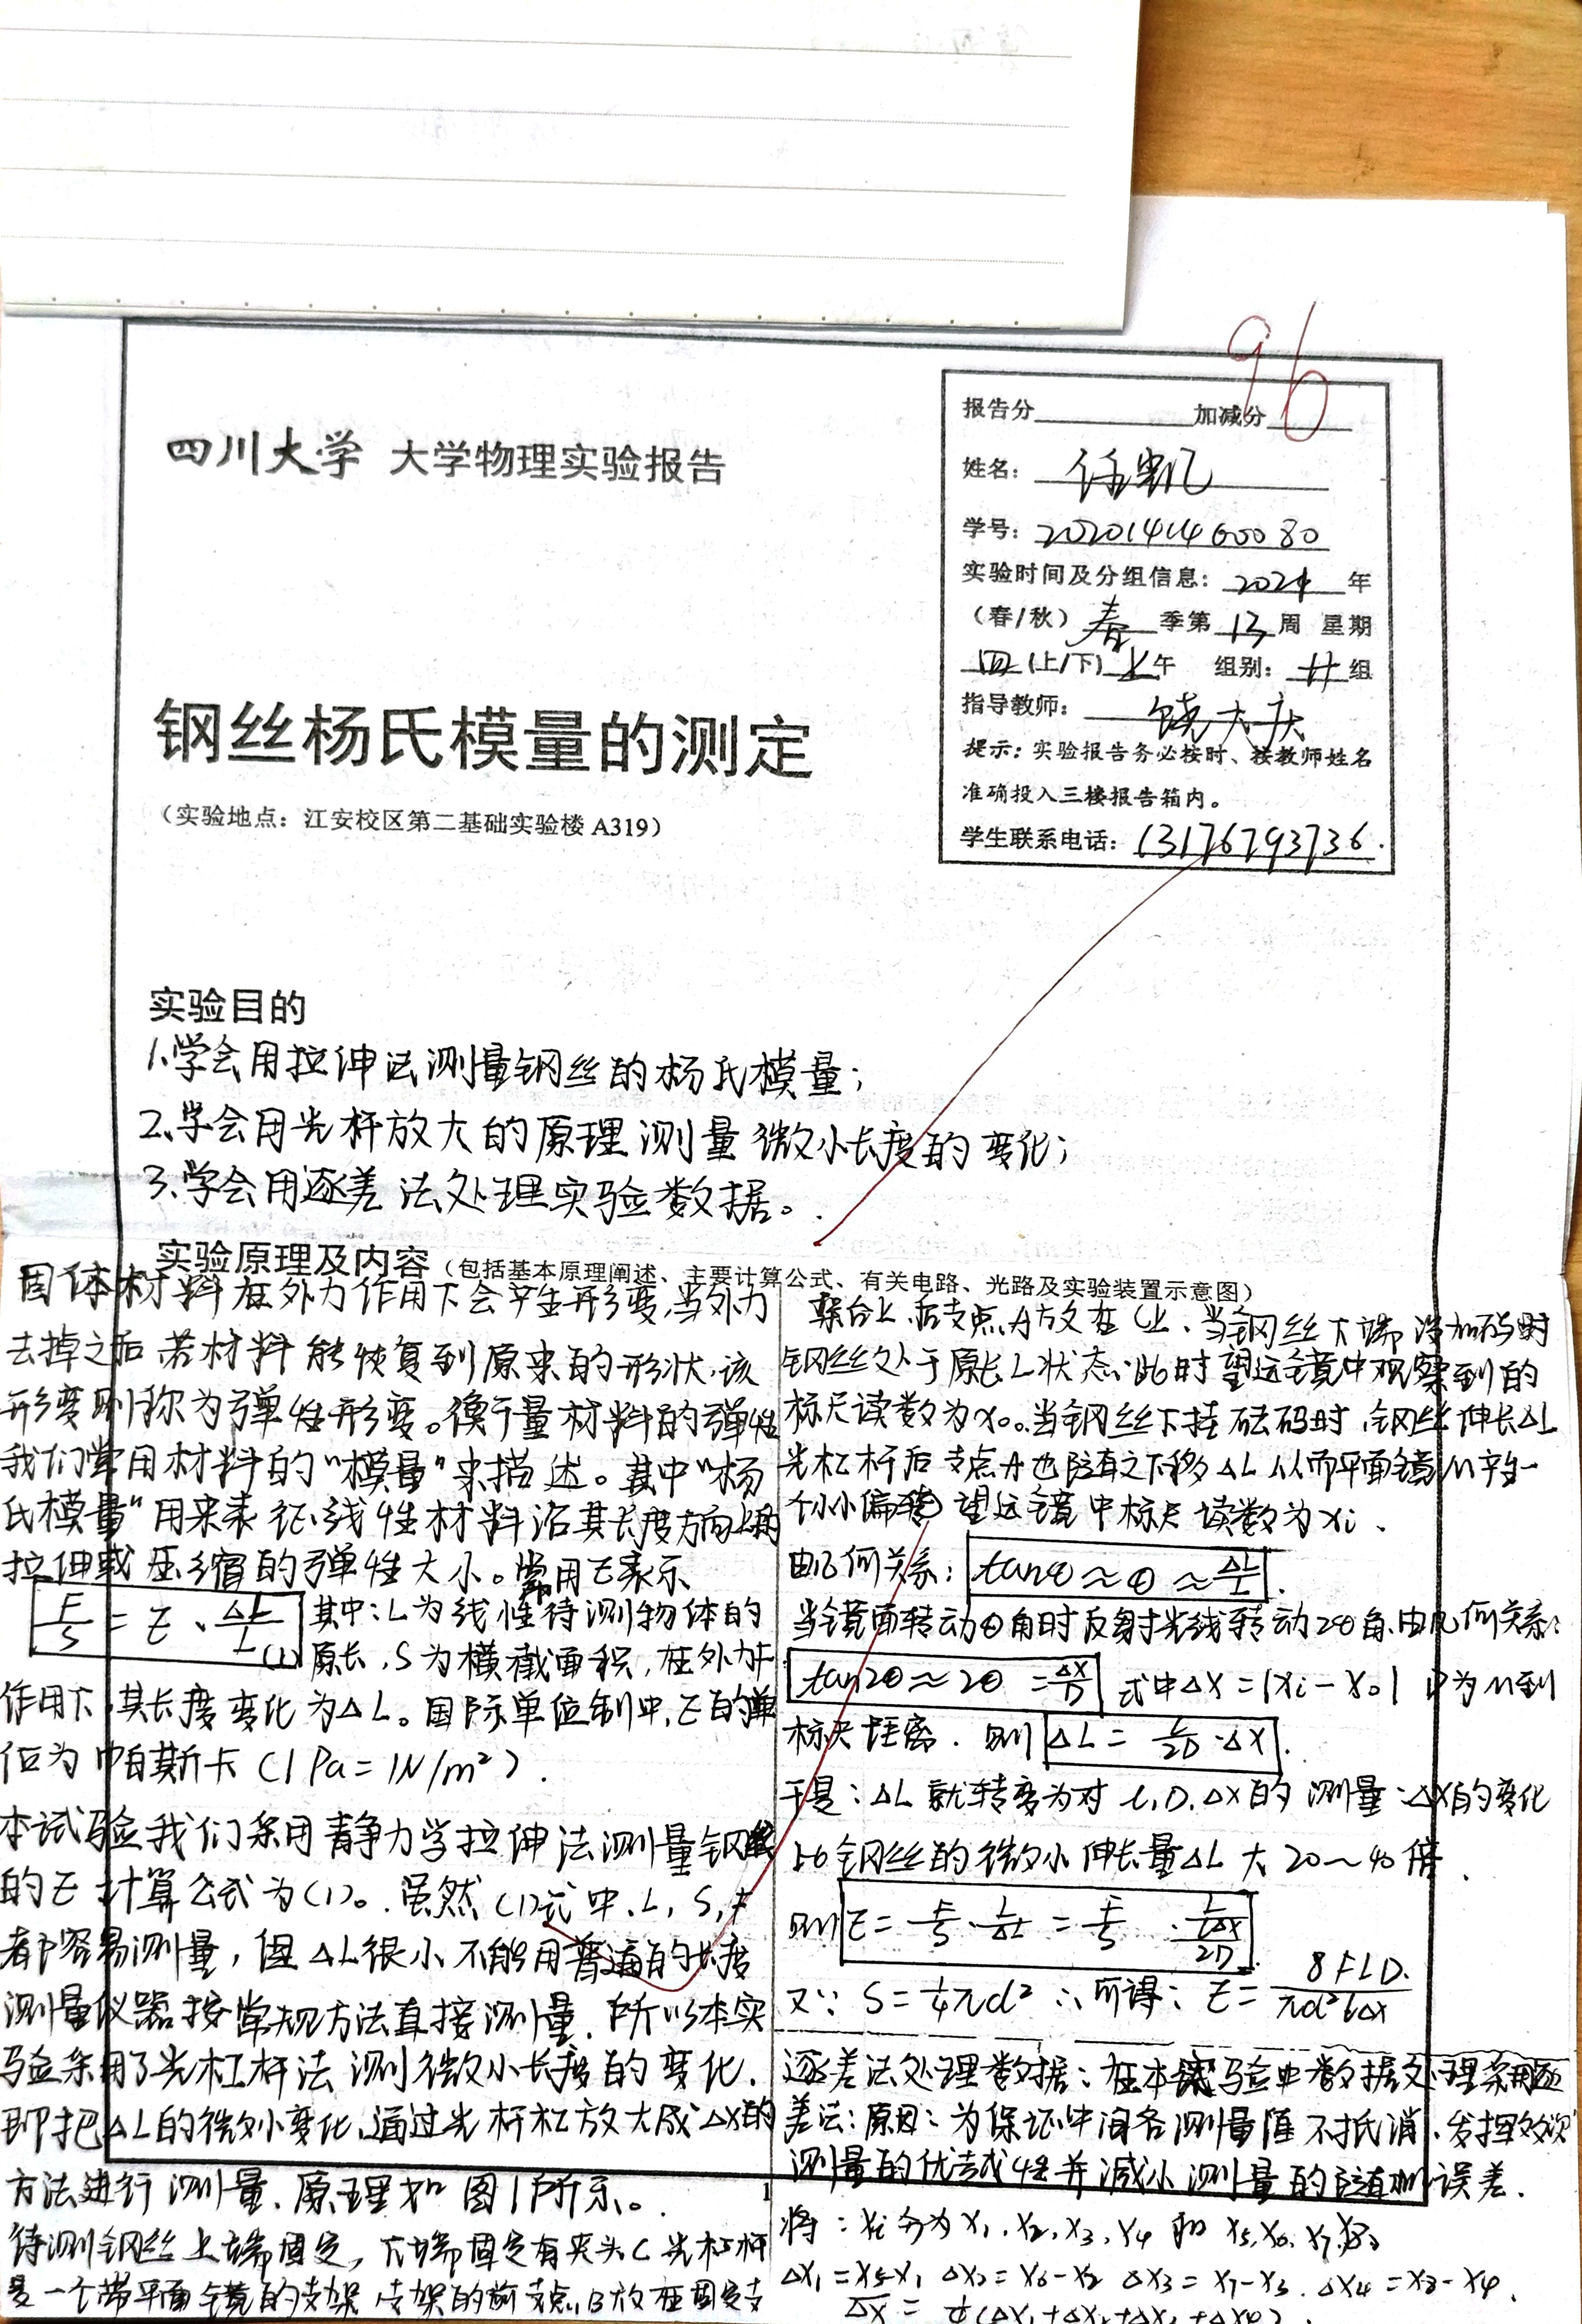 96
报告分 加减分
四川大学 大学物理实验报告
姓名:
学号:
实验时间及分组信息: 年
(春/秋) 春 季第 13 周 星期
四 (上/下) 上 午 组别: 组
指导教师: 饶大庆
提示: 实验报告务必按时、按教师姓名
准确投入三楼报告箱内。
学生联系电话: 13176793736.
钢丝杨氏模量的测定
(实验地点: 江安校区第二基础实验楼 A319)
实验目的
1.学会用拉伸法测量钢丝的杨氏模量;
2.学会用光杆放大的原理测量微小长度的变化;
3.学会用逐差法处理实验数据。
实验原理及内容 (包括基本原理阐述、主要计算公式、有关电路、光路及实验装置示意图)
固体材料在外力作用下会产生形变,当外力
去掉之后 若材料能恢复到原来的形状,该
形变则称为弹性形变。衡量材料的弹性
我们常用材料的“模量”来描述。其中“杨
氏模量”用来表征线性材料沿其长度方向上的
拉伸或压缩的弹性大小。常用E表示
F/S = E · ΔL/L (1) 其中: L为线性待测物体的
原长, S为横截面积, 在外力F
作用下,其长度变化为ΔL。国际单位制中,E的单
位为帕斯卡 (1Pa=1N/m²).
本试验我们采用静力学拉伸法测量钢丝
的E 计算公式为(1)。虽然(1)式中,L, S, F
都容易测量, 但ΔL很小不能用普通的长度
测量仪器按常规方法直接测量, 所以本实
验采用了光杠杆法测微小长度的变化.
即把ΔL的微小变化,通过光杆杠放大成ΔX的
方法进行测量. 原理如图1所示。
待测钢丝上端固定, 下端固定有夹头C 光杠杆
是一个带平面镜的支架 支架的前支点B放在固定支
架台上,后支点A放在C上. 当钢丝下端没加码时
钢丝处于原长L状态.此时望远镜中观察到的
标尺读数为x₀。当钢丝下挂砝码时,钢丝伸长ΔL
光杠杆后支点A也随之下移ΔL 从而平面镜M产生一
个小小偏转 望远镜中标尺读数为xi.
由几何关系: tanθ≈θ≈ΔL/l.
当镜面转动θ角时反射光线转动2θ角.由几何关系:
tan2θ≈2θ=ΔX/D 式中ΔX=|Xi-X₀| D为M到
标尺距离. 则 ΔL = l/2D·ΔX.
于是: ΔL就转变为对 l,D,ΔX的测量.ΔX的变化
比钢丝的微小伸长量ΔL 大20~40倍.
则 E = F/S · L/ΔL = F/S · L/(lΔX/2D)
又∵ S=¼πd² ∴所得: E= 8FLD/πd²lΔX.
逐差法处理数据: 在本实验中数据处理采用逐
差法: 原因: 为保证中间各测量值不抵消,发挥多次
测量的优越性并减小测量的随机误差.
将: Xi分为 X₁,X₂,X₃,X₄ 和 X₅,X₆,X₇,X₈
ΔX₁=X₅-X₁ ΔX₂=X₆-X₂ ΔX₃=X₇-X₃. ΔX₄=X₈-X₄.
ΔX = ¼(ΔX₁+ΔX₂+ΔX₃+ΔX₄).
1